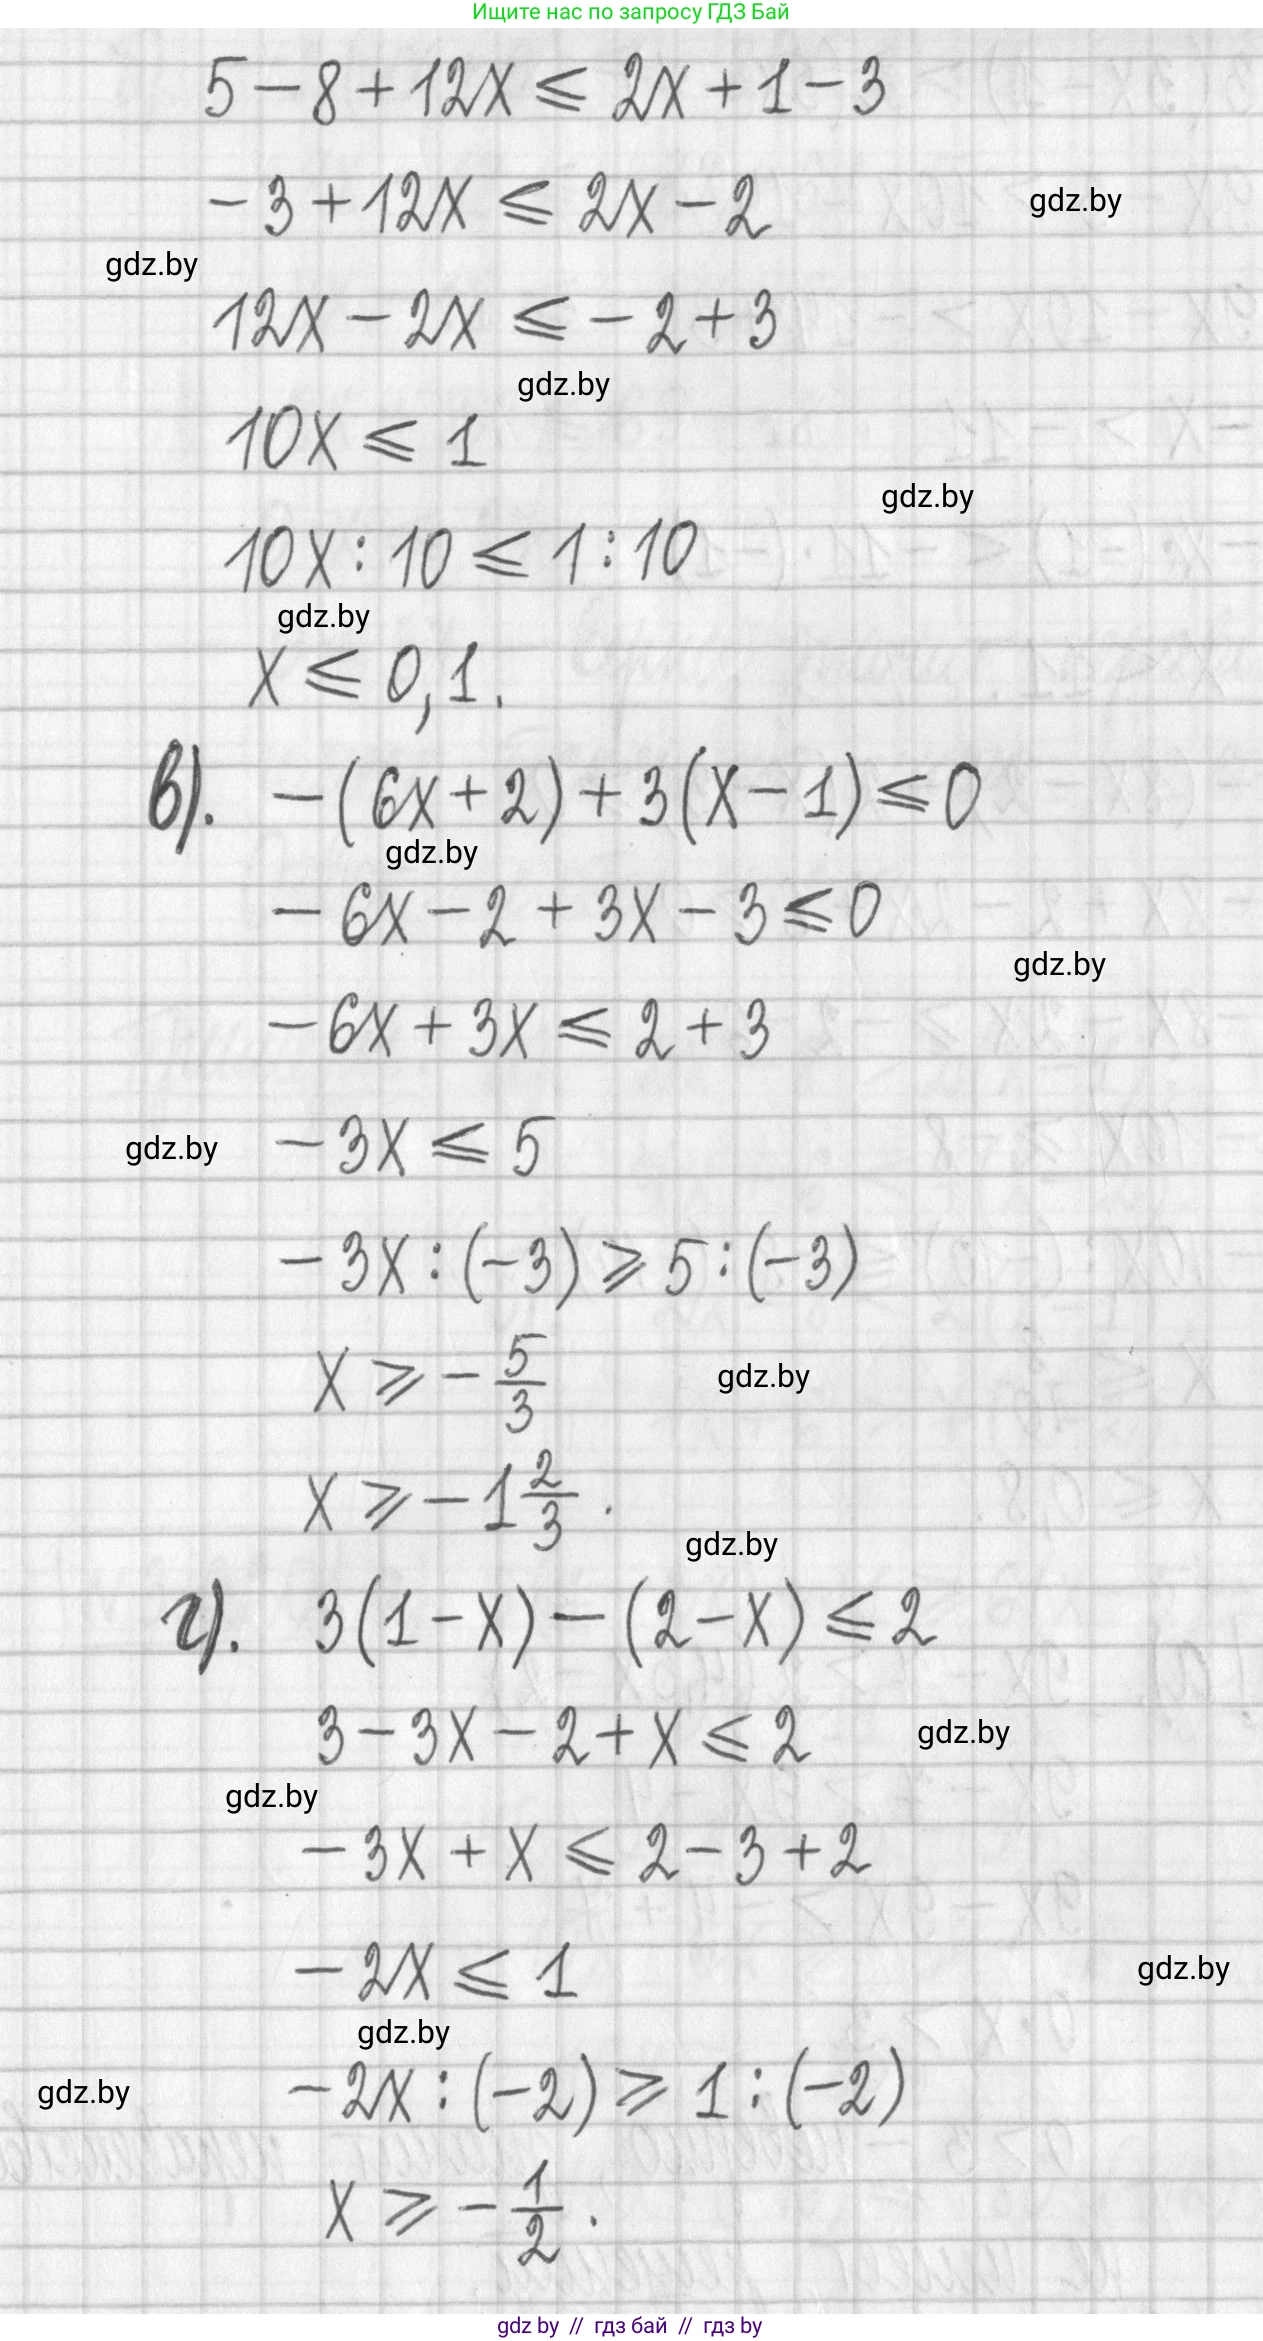 Ищите нас по запросу ГДЗ Бай
5 – 8 + 12x ⩽ 2x + 1 – 3
– 3 + 12x ⩽ 2x – 2
gdz.by
gdz.by
12x – 2x ⩽ – 2 + 3
gdz.by
10x ⩽ 1
gdz.by
10x : 10 ⩽ 1 : 10
gdz.by
x ⩽ 0,1.
в). – (6x + 2) + 3(x – 1) ⩽ 0
gdz.by
– 6x – 2 + 3x – 3 ⩽ 0
gdz.by
– 6x + 3x ⩽ 2 + 3
gdz.by – 3x ⩽ 5
– 3x : (–3) ⩾ 5 : (–3)
x ⩾ – 5/3
gdz.by
x ⩾ – 1 2/3 .
gdz.by
г). 3(1 – x) – (2 – x) ⩽ 2
3 – 3x – 2 + x ⩽ 2
gdz.by
gdz.by
– 3x + x ⩽ 2 – 3 + 2
– 2x ⩽ 1
gdz.by
gdz.by
gdz.by
– 2x : (–2) ⩾ 1 : (–2)
x ⩾ – 1/2 .
gdz by // гдз бай // гдз by